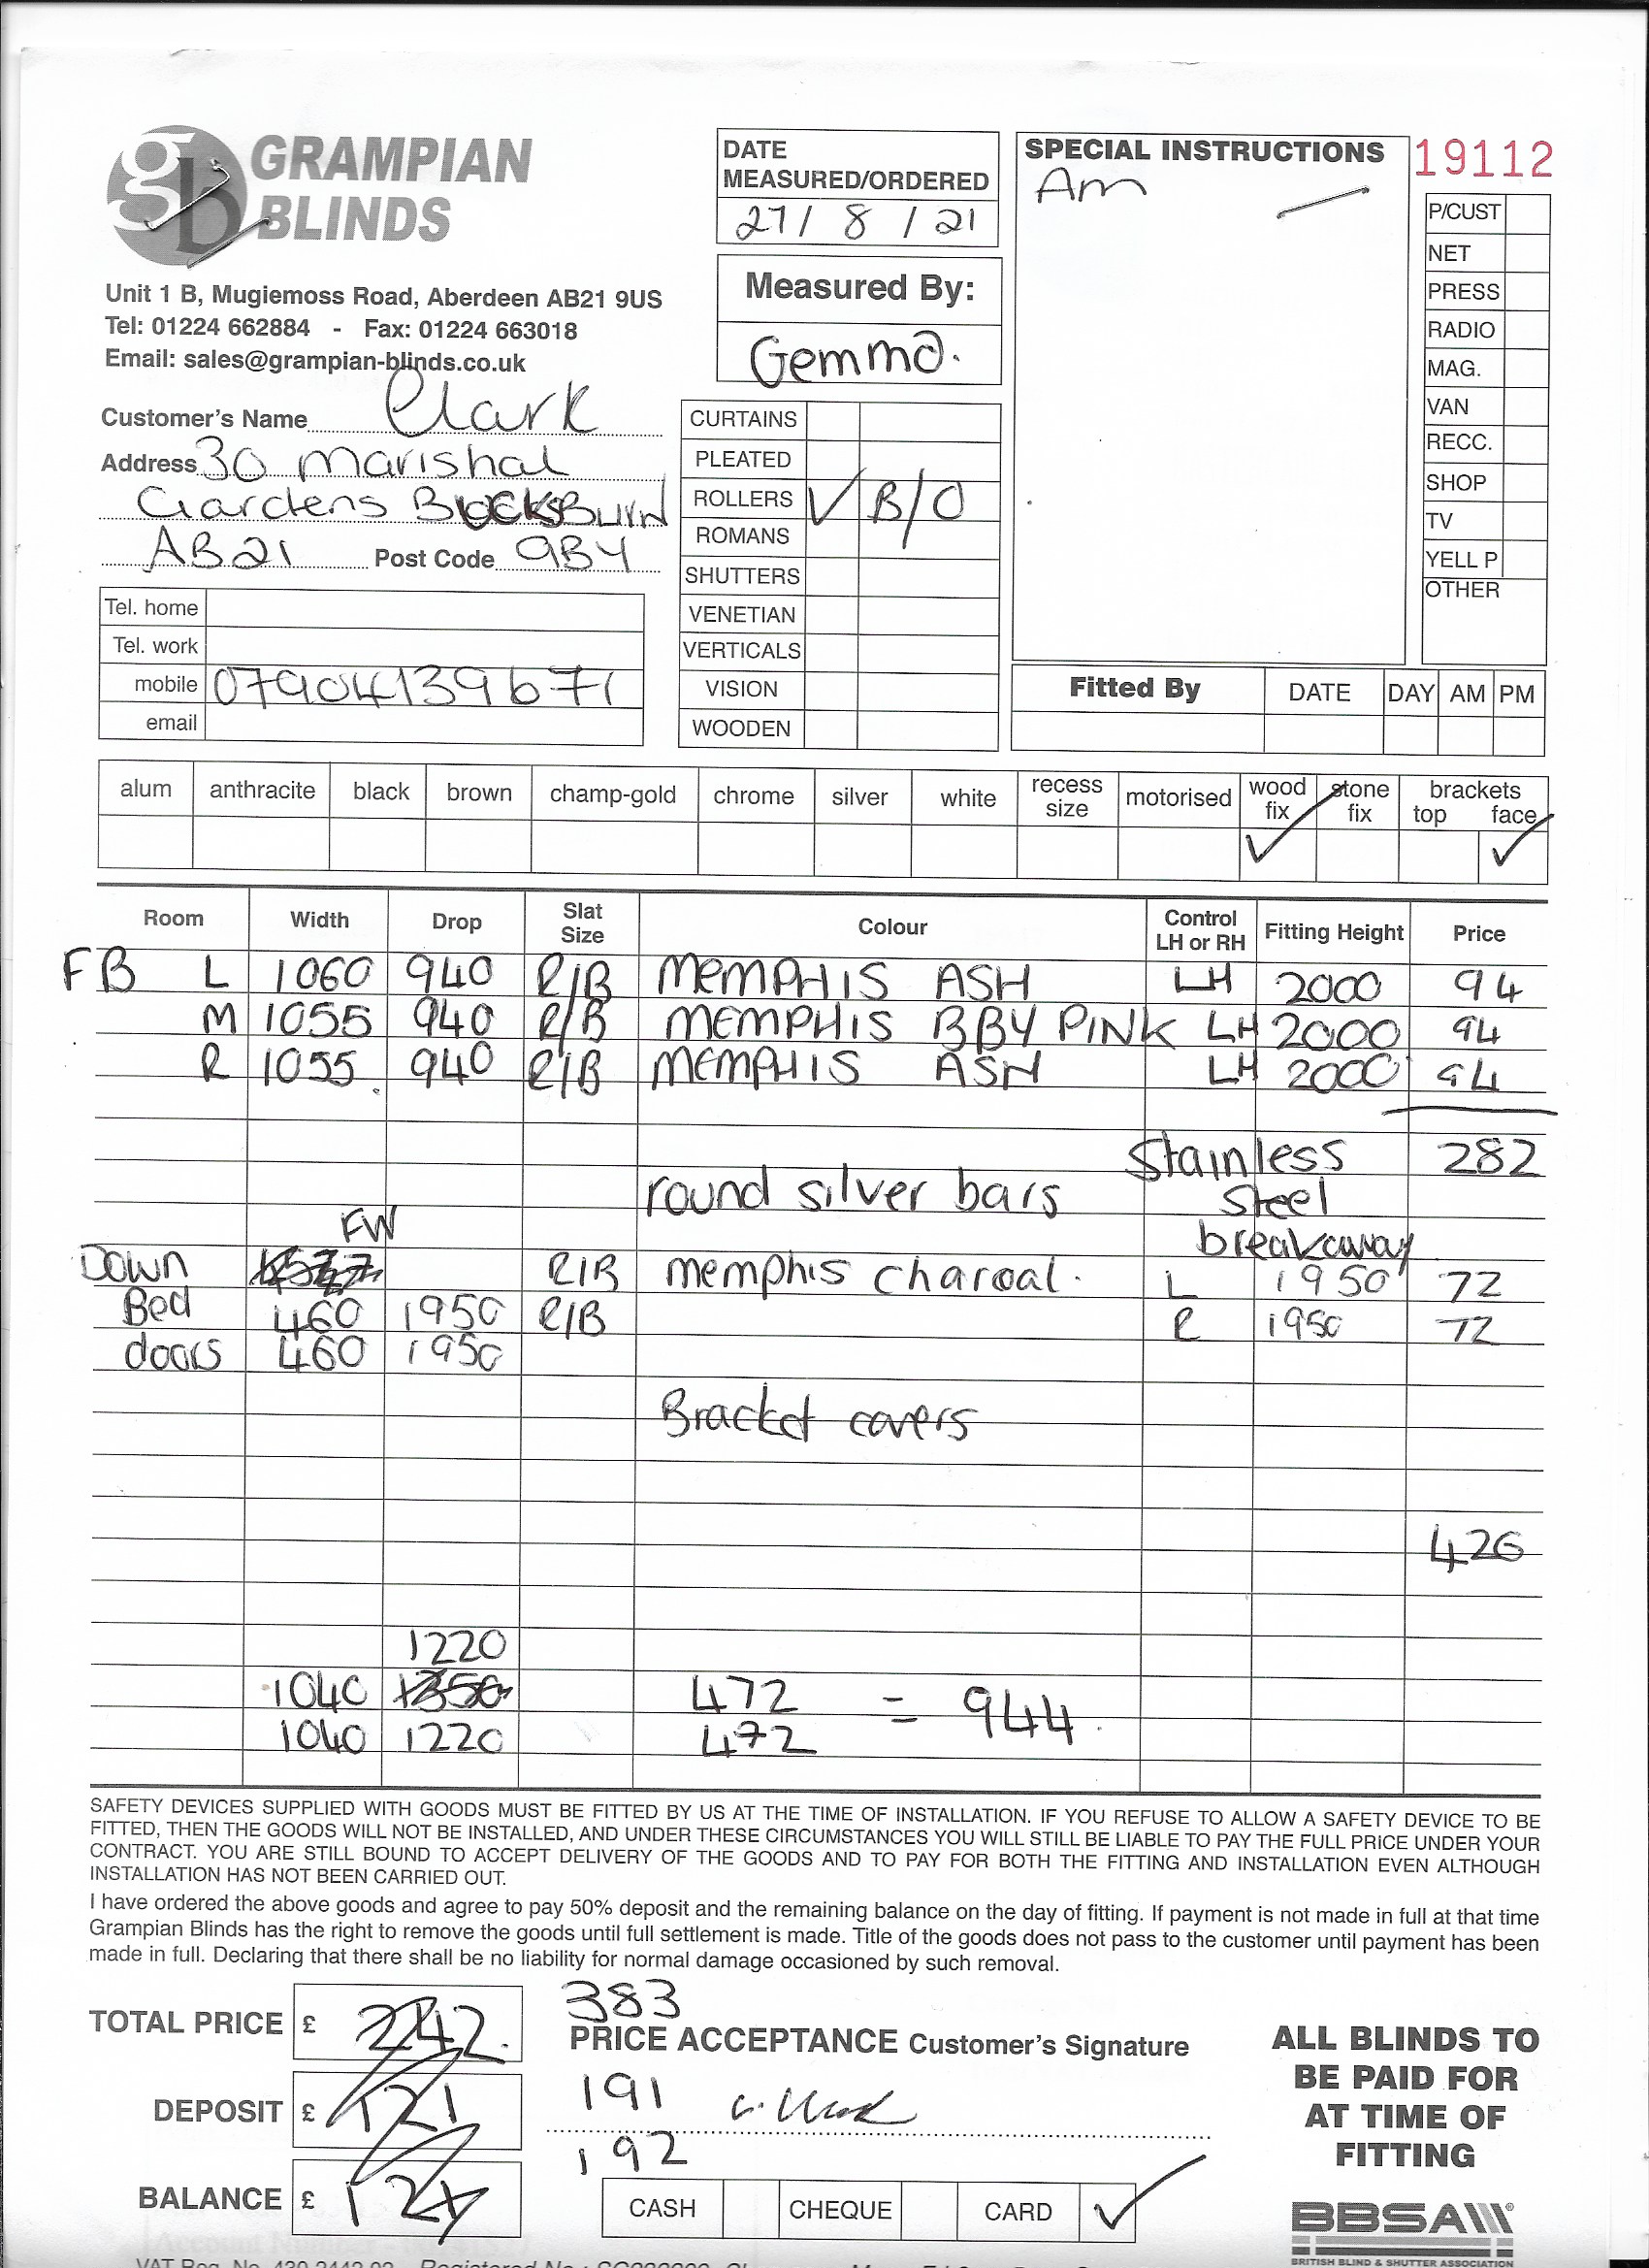 GRAMPIAN
BLINDS
Unit 1 B, Mugiemoss Road, Aberdeen AB21 9US
Tel: 01224 662884 - Fax: 01224 663018
Email: sales@grampian-blinds.co.uk
Customer's Name Clark
Address 30 Marishal
Gardens BucksBurn
AB21 Post Code 9BY
Tel. home
Tel. work
mobile 07904139671
email
DATE
MEASURED/ORDERED
27/ 8 / 21
Measured By:
Gemma.
CURTAINS
PLEATED
ROLLERS ✓ B/O
ROMANS
SHUTTERS
VENETIAN
VERTICALS
VISION
WOODEN
SPECIAL INSTRUCTIONS
Am
19112
P/CUST
NET
PRESS
RADIO
MAG.
VAN
RECC.
SHOP
TV
YELL P
OTHER
Fitted By DATE DAY AM PM
alum anthracite black brown champ-gold chrome silver white recess size motorised wood fix stone fix brackets top face
✓ ✓
Room Width Drop Slat Size Colour Control LH or RH Fitting Height Price
FB L 1060 940 R/B MEMPHIS ASH LH 2000 94
M 1055 940 R/B MEMPHIS BBY PINK LH 2000 94
R 1055 940 R/B MEMPHIS ASH LH 2000 94
Stainless 282
round silver bars Steel
FW breakaway
Down R/B memphis charcoal. L 1950 72
Bed 460 1950 R/B R 1950 72
doors 460 1950
Bracket covers
426
1220
1040 1350 472 = 944
1040 1220 472
SAFETY DEVICES SUPPLIED WITH GOODS MUST BE FITTED BY US AT THE TIME OF INSTALLATION. IF YOU REFUSE TO ALLOW A SAFETY DEVICE TO BE
FITTED, THEN THE GOODS WILL NOT BE INSTALLED, AND UNDER THESE CIRCUMSTANCES YOU WILL STILL BE LIABLE TO PAY THE FULL PRICE UNDER YOUR
CONTRACT. YOU ARE STILL BOUND TO ACCEPT DELIVERY OF THE GOODS AND TO PAY FOR BOTH THE FITTING AND INSTALLATION EVEN ALTHOUGH
INSTALLATION HAS NOT BEEN CARRIED OUT.
I have ordered the above goods and agree to pay 50% deposit and the remaining balance on the day of fitting. If payment is not made in full at that time
Grampian Blinds has the right to remove the goods until full settlement is made. Title of the goods does not pass to the customer until payment has been
made in full. Declaring that there shall be no liability for normal damage occasioned by such removal.
TOTAL PRICE £ 242.
DEPOSIT £ 121
BALANCE £
383
PRICE ACCEPTANCE Customer's Signature
191
192
CASH CHEQUE CARD ✓
ALL BLINDS TO
BE PAID FOR
AT TIME OF
FITTING
BBSA
BRITISH BLIND & SHUTTER ASSOCIATION